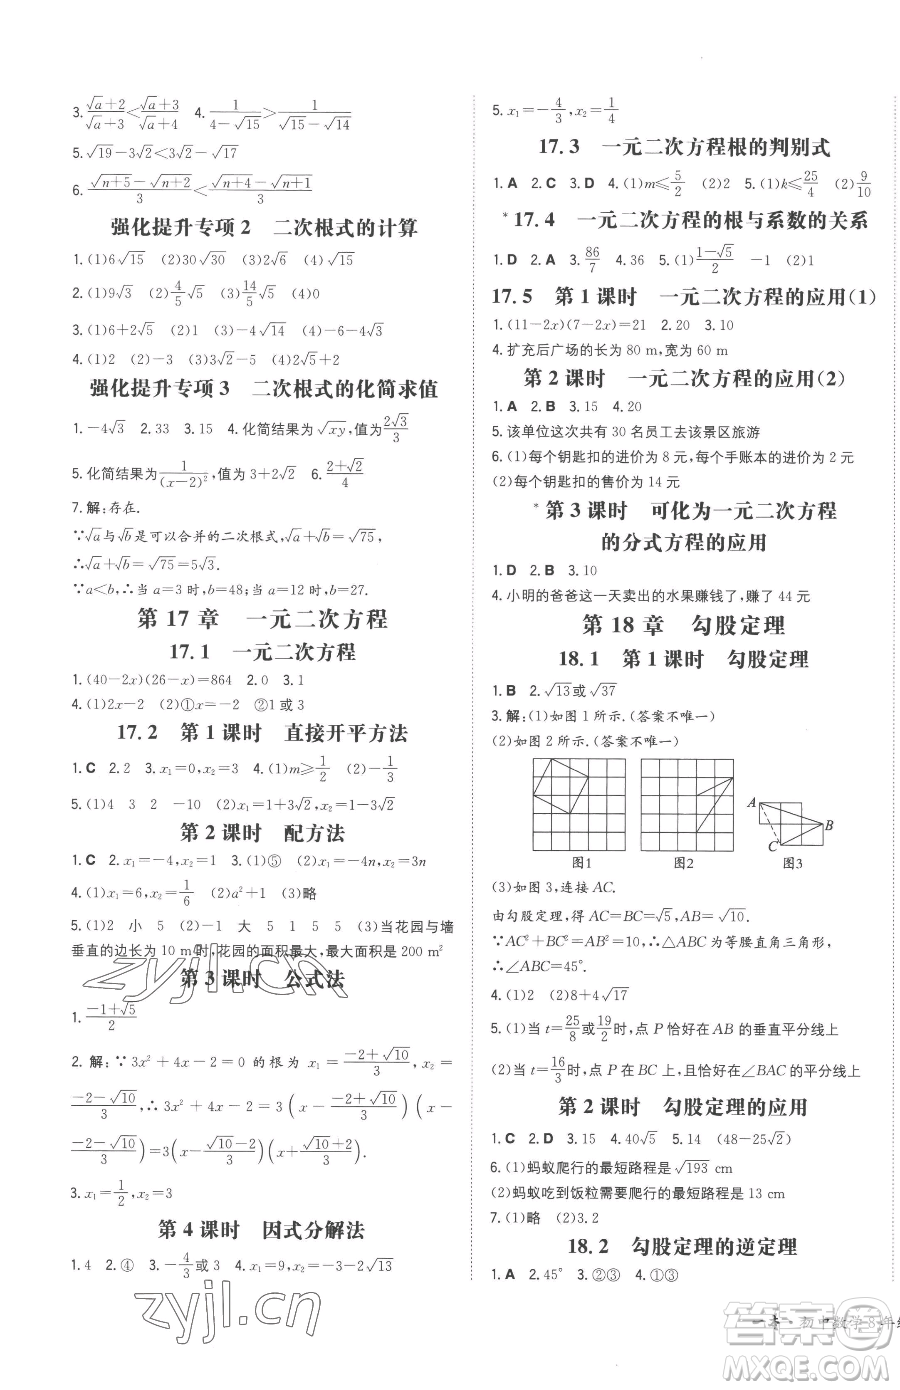 3. (√a+2)/(√a+3)<(√a+3)/(√a+4) 4. 1/(4-√15)>1/(√15-√14)
5. √19-3√2<3√2-√17
6. (√(n+5)-√(n+2))/3<(√(n+4)-√(n+1))/3
强化提升专项2 二次根式的计算
1. (1)6√15 (2)30√7 (3)2√6 (4)√15
2. (1)9√3 (2)4/5√5 (3)14/5√5 (4)0
3. (1)6+2√5 (2)1 (3)-4√14 (4)-6-4√3
4. (1)2 (2)-3 (3)√2-5 (4)2√5+2
强化提升专项3 二次根式的化简求值
1. -4√3 2. 33 3. 15 4. 化简结果为√xy,值为2√3/3
5. 化简结果为1/(x-2)²,值为3+2√2 6. (2+√2)/4
7. 解:存在.
∵√a与√b是可以合并的二次根式,√a+√b=√75,
∴√a+√b=√75=5√3.
∵a<b,∴当a=3时,b=48;当a=12时,b=27.
第17章 一元二次方程
17.1 一元二次方程
1. (40-2x)(26-x)=864 2. 0 3. 1
4. (1)2x-2 (2)①x=-2 ②1或3
17.2 第1课时 直接开平方法
1. C 2. 2 3. x₁=0,x₂=3 4. (1)m≥1/2 (2)-1/3
5. (1)4 3 2 -10 (2)x₁=1+3√2,x₂=1-3√2
第2课时 配方法
1. C 2. x₁=-4,x₂=1 3. (1)⑤ (2)x₁=-4n,x₂=3n
4. (1)x₁=6,x₂=1/6 (2)a²+1 (3)略
5. (1)2 小 5 (2)-1 大 5 1 5 5 (3)当花园与墙
垂直的边长为10 m时,花园的面积最大,最大面积是200 m²
zyjl.cn
第3课时 公式法
1. (-1+√5)/2
2. 解:∵3x²+4x-2=0的根为x₁=(-2+√10)/3,x₂=
(-2-√10)/3,∴3x²+4x-2=3(x-(-2+√10)/3)(x-
(-2-√10)/3)=3(x-(√10-2)/3)(x+(√10+2)/3).
3. x₁=1/2,x₂=3
第4课时 因式分解法
1. 4 2. ④ 3. -4/3或3 4. x₁=9,x₂=-3-2√13
zyjl.cn
5. x₁=-4/3,x₂=1/4
17.3 一元二次方程根的判别式
1. A 2. C 3. D 4. (1)m≤5/2 (2)2 5. (1)k≤25/4 (2)9/10
*17.4 一元二次方程的根与系数的关系
1. D 2. A 3. 86/7 4. 36 5. (1)(1-√5)/2 -1 (2)1
17.5 第1课时 一元二次方程的应用(1)
1. (11-2x)(7-2x)=21 2. 20 3. 10
4. 扩充后广场的长为80 m,宽为60 m
第2课时 一元二次方程的应用(2)
1. A 2. B 3. 15 4. 20
5. 该单位这次共有30名员工去该景区旅游
6. (1)每个钥匙扣的进价为8元,每个手账本的进价为2元
(2)每个钥匙扣的售价为14元
*第3课时 可化为一元二次方程
的分式方程的应用
1. D 2. B 3. 10
4. 小明的爸爸这一天卖出的水果赚钱了,赚了44元
第18章 勾股定理
18.1 第1课时 勾股定理
1. B 2. √13或√37
3. 解:(1)如图1所示.(答案不唯一)
(2)如图2所示.(答案不唯一)
A
B
C
图1 图2 图3
(3)如图3,连接AC.
由勾股定理,得AC=BC=√5,AB=√10.
∵AC²+BC²=AB²=10,∴△ABC为等腰直角三角形,
∴∠ABC=45°.
4. (1)2 (2)8+4√17
5. (1)当t=25/8或19/2时,点P恰好在AB的垂直平分线上
(2)当t=16/3时,点P在BC上,且恰好在∠BAC的平分线上
第2课时 勾股定理的应用
1. C 2. D 3. 15 4. 40√5 5. 14 (48-25√2)
6. (1)蚂蚁爬行的最短路程是√193 cm
(2)蚂蚁吃到饭粒需要爬行的最短路程是13 cm
7. (1)略 (2)3.2
18.2 勾股定理的逆定理
1. A 2. 45° 3. ②③ 4. ①③
一本·初中数学8年级
答案圈
MXQE.COM